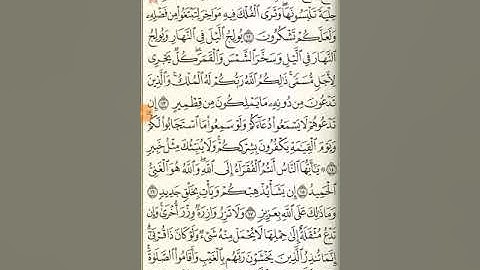 حِلْيَةً تَلْبَسُونَهَا وَتَرَى الْفُلْكَ فِيهِ مَوَاخِرَ لِتَبْتَغُوا مِن فَضْلِهِ
وَلَعَلَّكُمْ تَشْكُرُونَ ١٢ يُولِجُ الَّيْلَ فِي النَّهَارِ وَيُولِجُ
النَّهَارَ فِي الَّيْلِ وَسَخَّرَ الشَّمْسَ وَالْقَمَرَ كُلٌّ يَجْرِي
لِأَجَلٍ مُّسَمًّى ذَٰلِكُمُ اللَّهُ رَبُّكُمْ لَهُ الْمُلْكُ وَالَّذِينَ
تَدْعُونَ مِن دُونِهِ مَا يَمْلِكُونَ مِن قِطْمِيرٍ ١٣ إِن
تَدْعُوهُمْ لَا يَسْمَعُوا دُعَاءَكُمْ وَلَوْ سَمِعُوا مَا اسْتَجَابُوا لَكُمْ
وَيَوْمَ الْقِيَٰمَةِ يَكْفُرُونَ بِشِرْكِكُمْ وَلَا يُنَبِّئُكَ مِثْلُ خَبِيرٍ
١٤ ۞ يَٰأَيُّهَا النَّاسُ أَنتُمُ الْفُقَرَاءُ إِلَى اللَّهِ وَاللَّهُ هُوَ الْغَنِيُّ
الْحَمِيدُ ١٥ إِن يَشَأْ يُذْهِبْكُمْ وَيَأْتِ بِخَلْقٍ جَدِيدٍ ١٦
وَمَا ذَٰلِكَ عَلَى اللَّهِ بِعَزِيزٍ ١٧ وَلَا تَزِرُ وَازِرَةٌ وِزْرَ أُخْرَىٰ وَإِن
تَدْعُ مُثْقَلَةٌ إِلَىٰ حِمْلِهَا لَا يُحْمَلْ مِنْهُ شَيْءٌ وَلَوْ كَانَ ذَا قُرْبَىٰ
إِنَّمَا تُنذِرُ الَّذِينَ يَخْشَوْنَ رَبَّهُم بِالْغَيْبِ وَأَقَامُوا الصَّلَوٰةَ